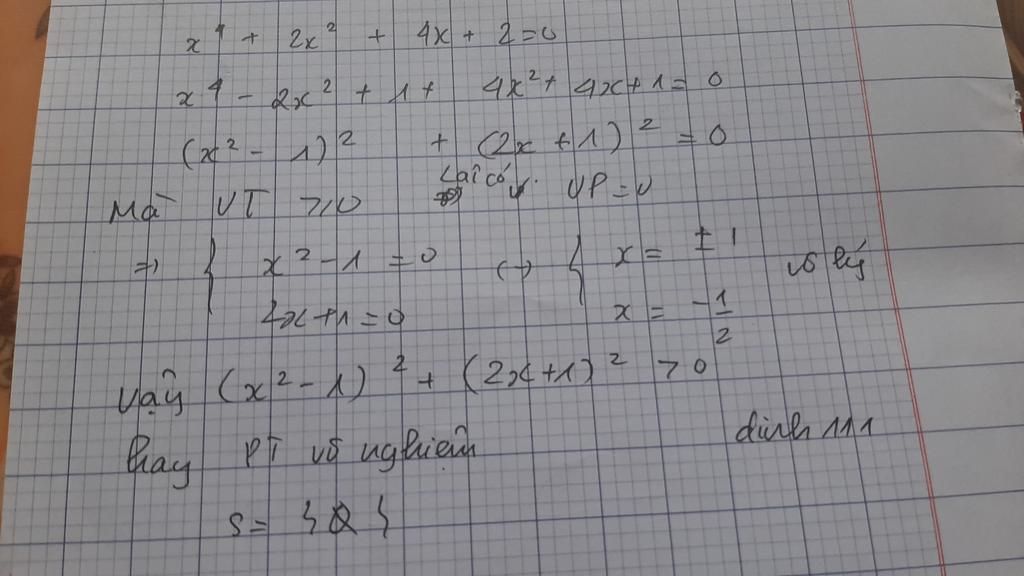 x⁴ + 2x² + 4x + 2 = 0
x⁴ - 2x² + 1 + 4x² + 4x + 1 = 0
(x² - 1)² + (2x + 1)² = 0
Mà VT ≥ 0 Lại có VP = 0
=> { x² - 1 = 0 <-> { x = ±1 vô lý
2x + 1 = 0 x = -1/2
Vậy (x² - 1)² + (2x + 1)² > 0
hay PT vô nghiệm đinh 111
S = {∅}